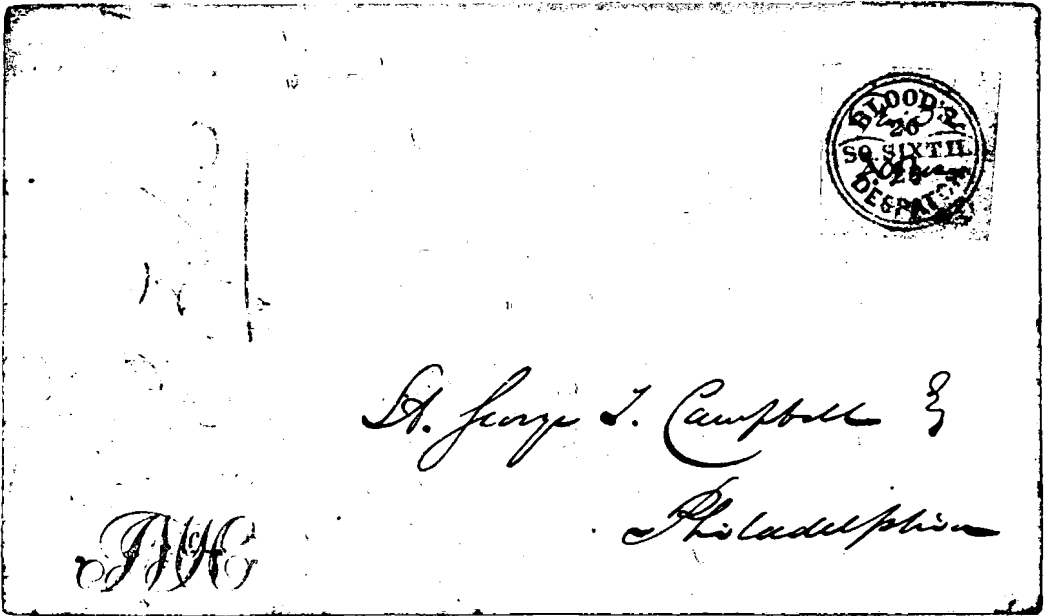 BLOOD'S
SO. SIXTH
DESPATCH
St. George T. Campbell
Philadelphia